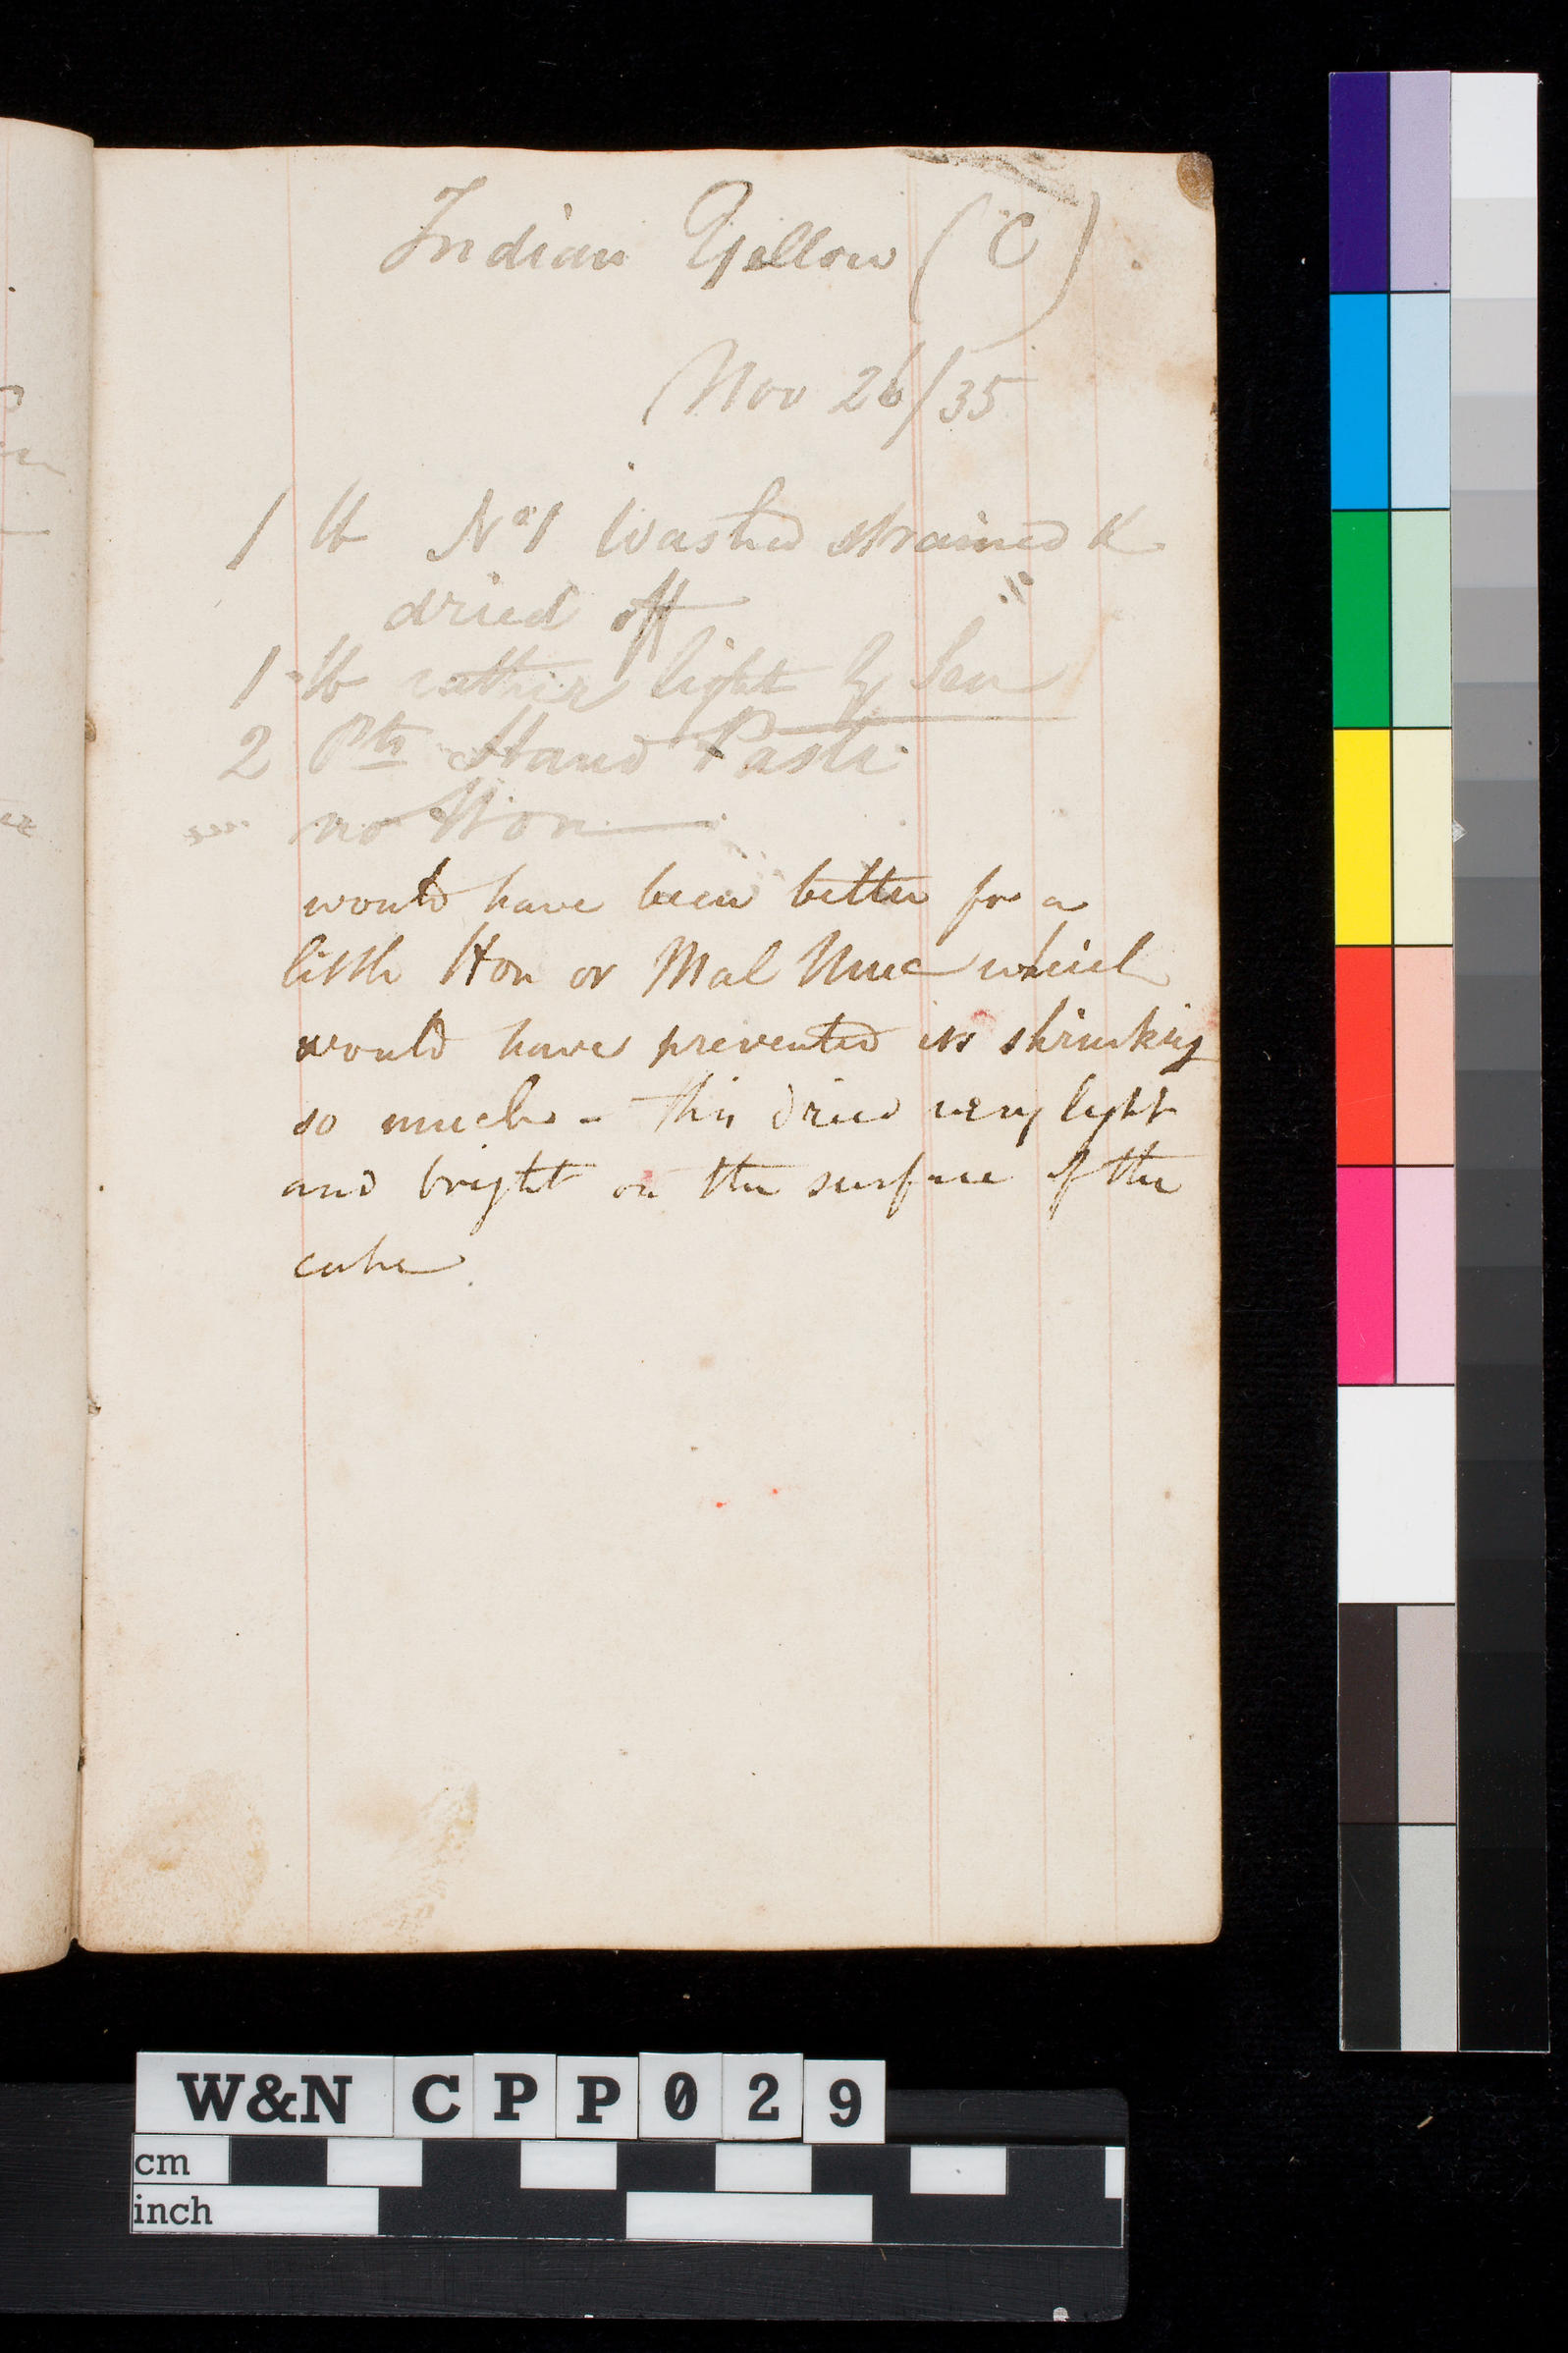 Indian Yellow (C)
Nov 26/35
1 lb No 1 Washed strained &
dried off
1 lb rather light by
2 Pts Stand Paste
no Hon
would have been better for a
little Hon or Mal Muc which
would have prevented its shrinking
so much - this dried very light
and bright on the surface of the
cake
W&N CPP029
cm
inch